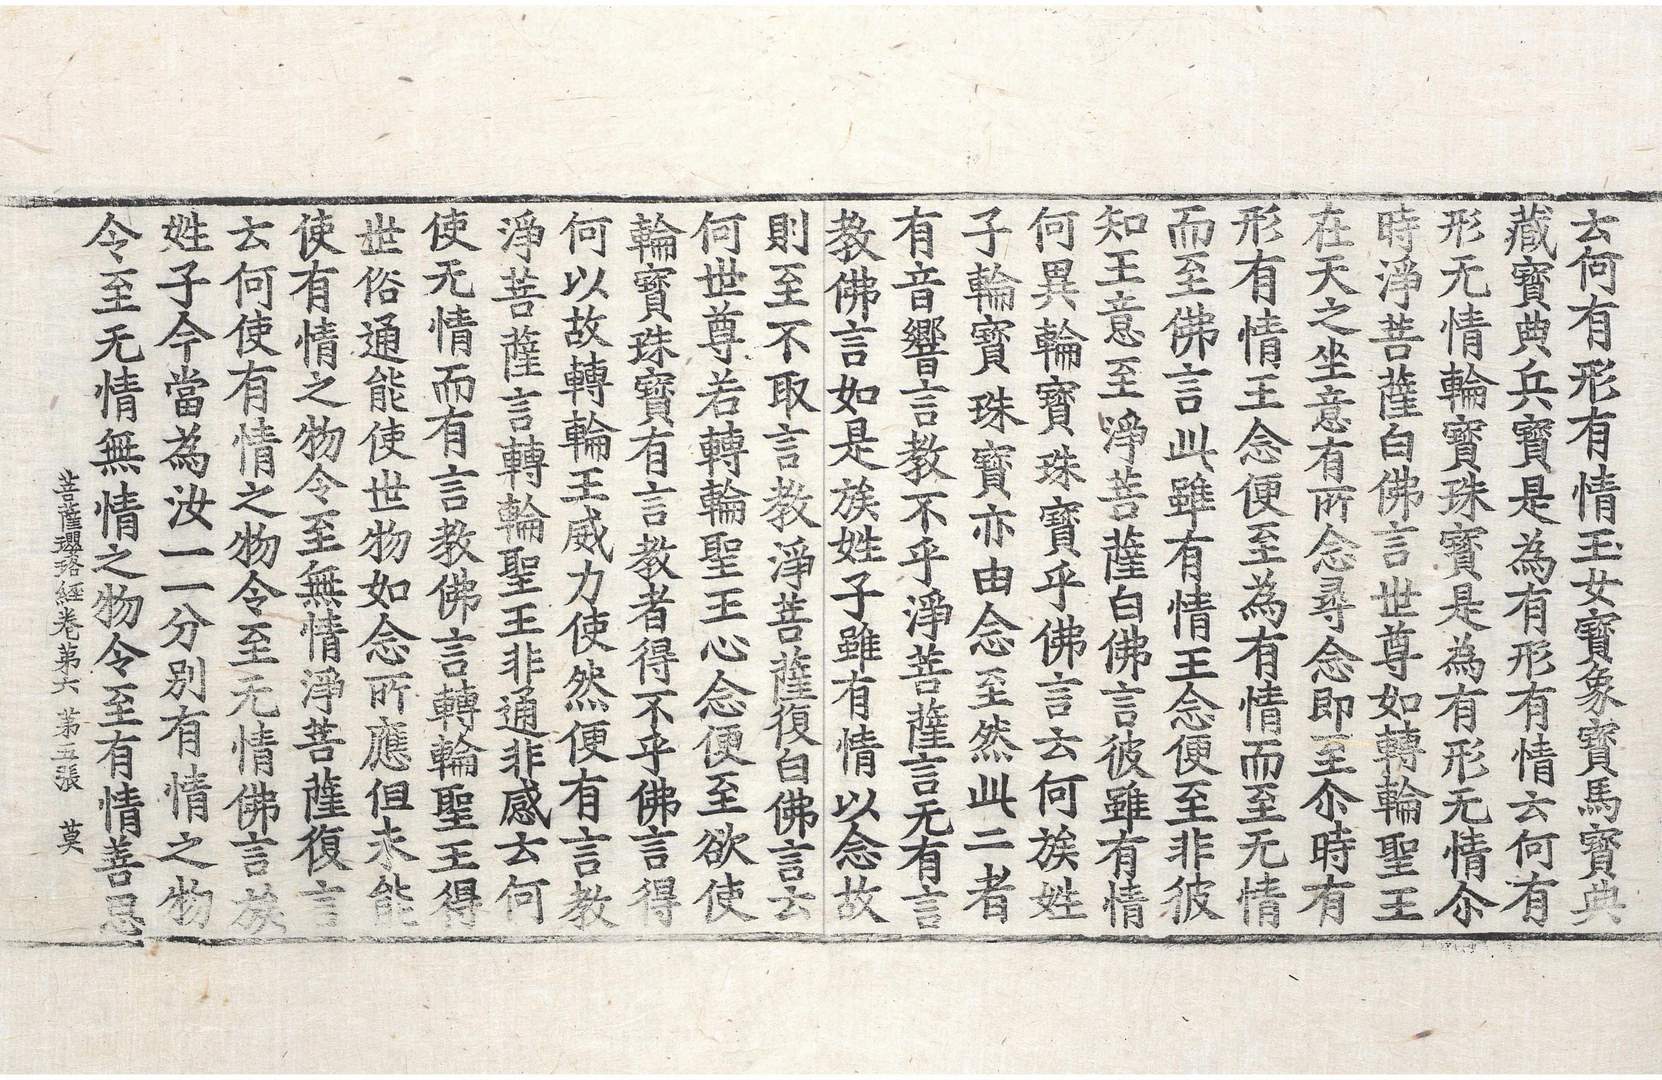 去何有形有情玉女寶象寶馬寶典
藏寶典兵寶是為有形有情云何有
形无情輪寶珠寶是為有形无情尒
時淨菩薩白佛言世尊如轉輪聖王
在天之坐意有所念尋念即至尒時有
形有情王念便至為有情而至无情
而至佛言此雖有情王念便至非彼
知王意至淨菩薩白佛言彼雖有情
何異輪寶珠寶乎佛言云何族姓
子輪寶珠寶亦由念至然此二者
有音響言教不乎淨菩薩言无有言
教佛言如是族姓子雖有情以念故
則至不取言教淨菩薩復白佛言云
何世尊若轉輪聖王心念便至欲使
輪寶珠寶有言教者得不乎佛言得
何以故轉輪王威力使然便有言教
淨菩薩言轉輪聖王非通非感云何
使无情而有言教佛言轉輪聖王得
世俗通能使世物如念所應但未能
使有情之物令至無情淨菩薩復言
云何使有情之物令至无情佛言族
姓子今當為汝一一分別有情之物
令至无情無情之物令至有情善思
菩薩瓔珞經卷第六 第五張 莫